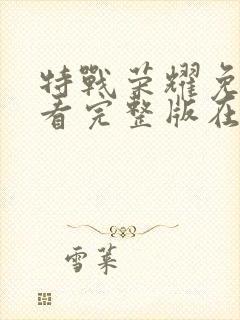 特戰荣耀免
看完整版在
雪莱